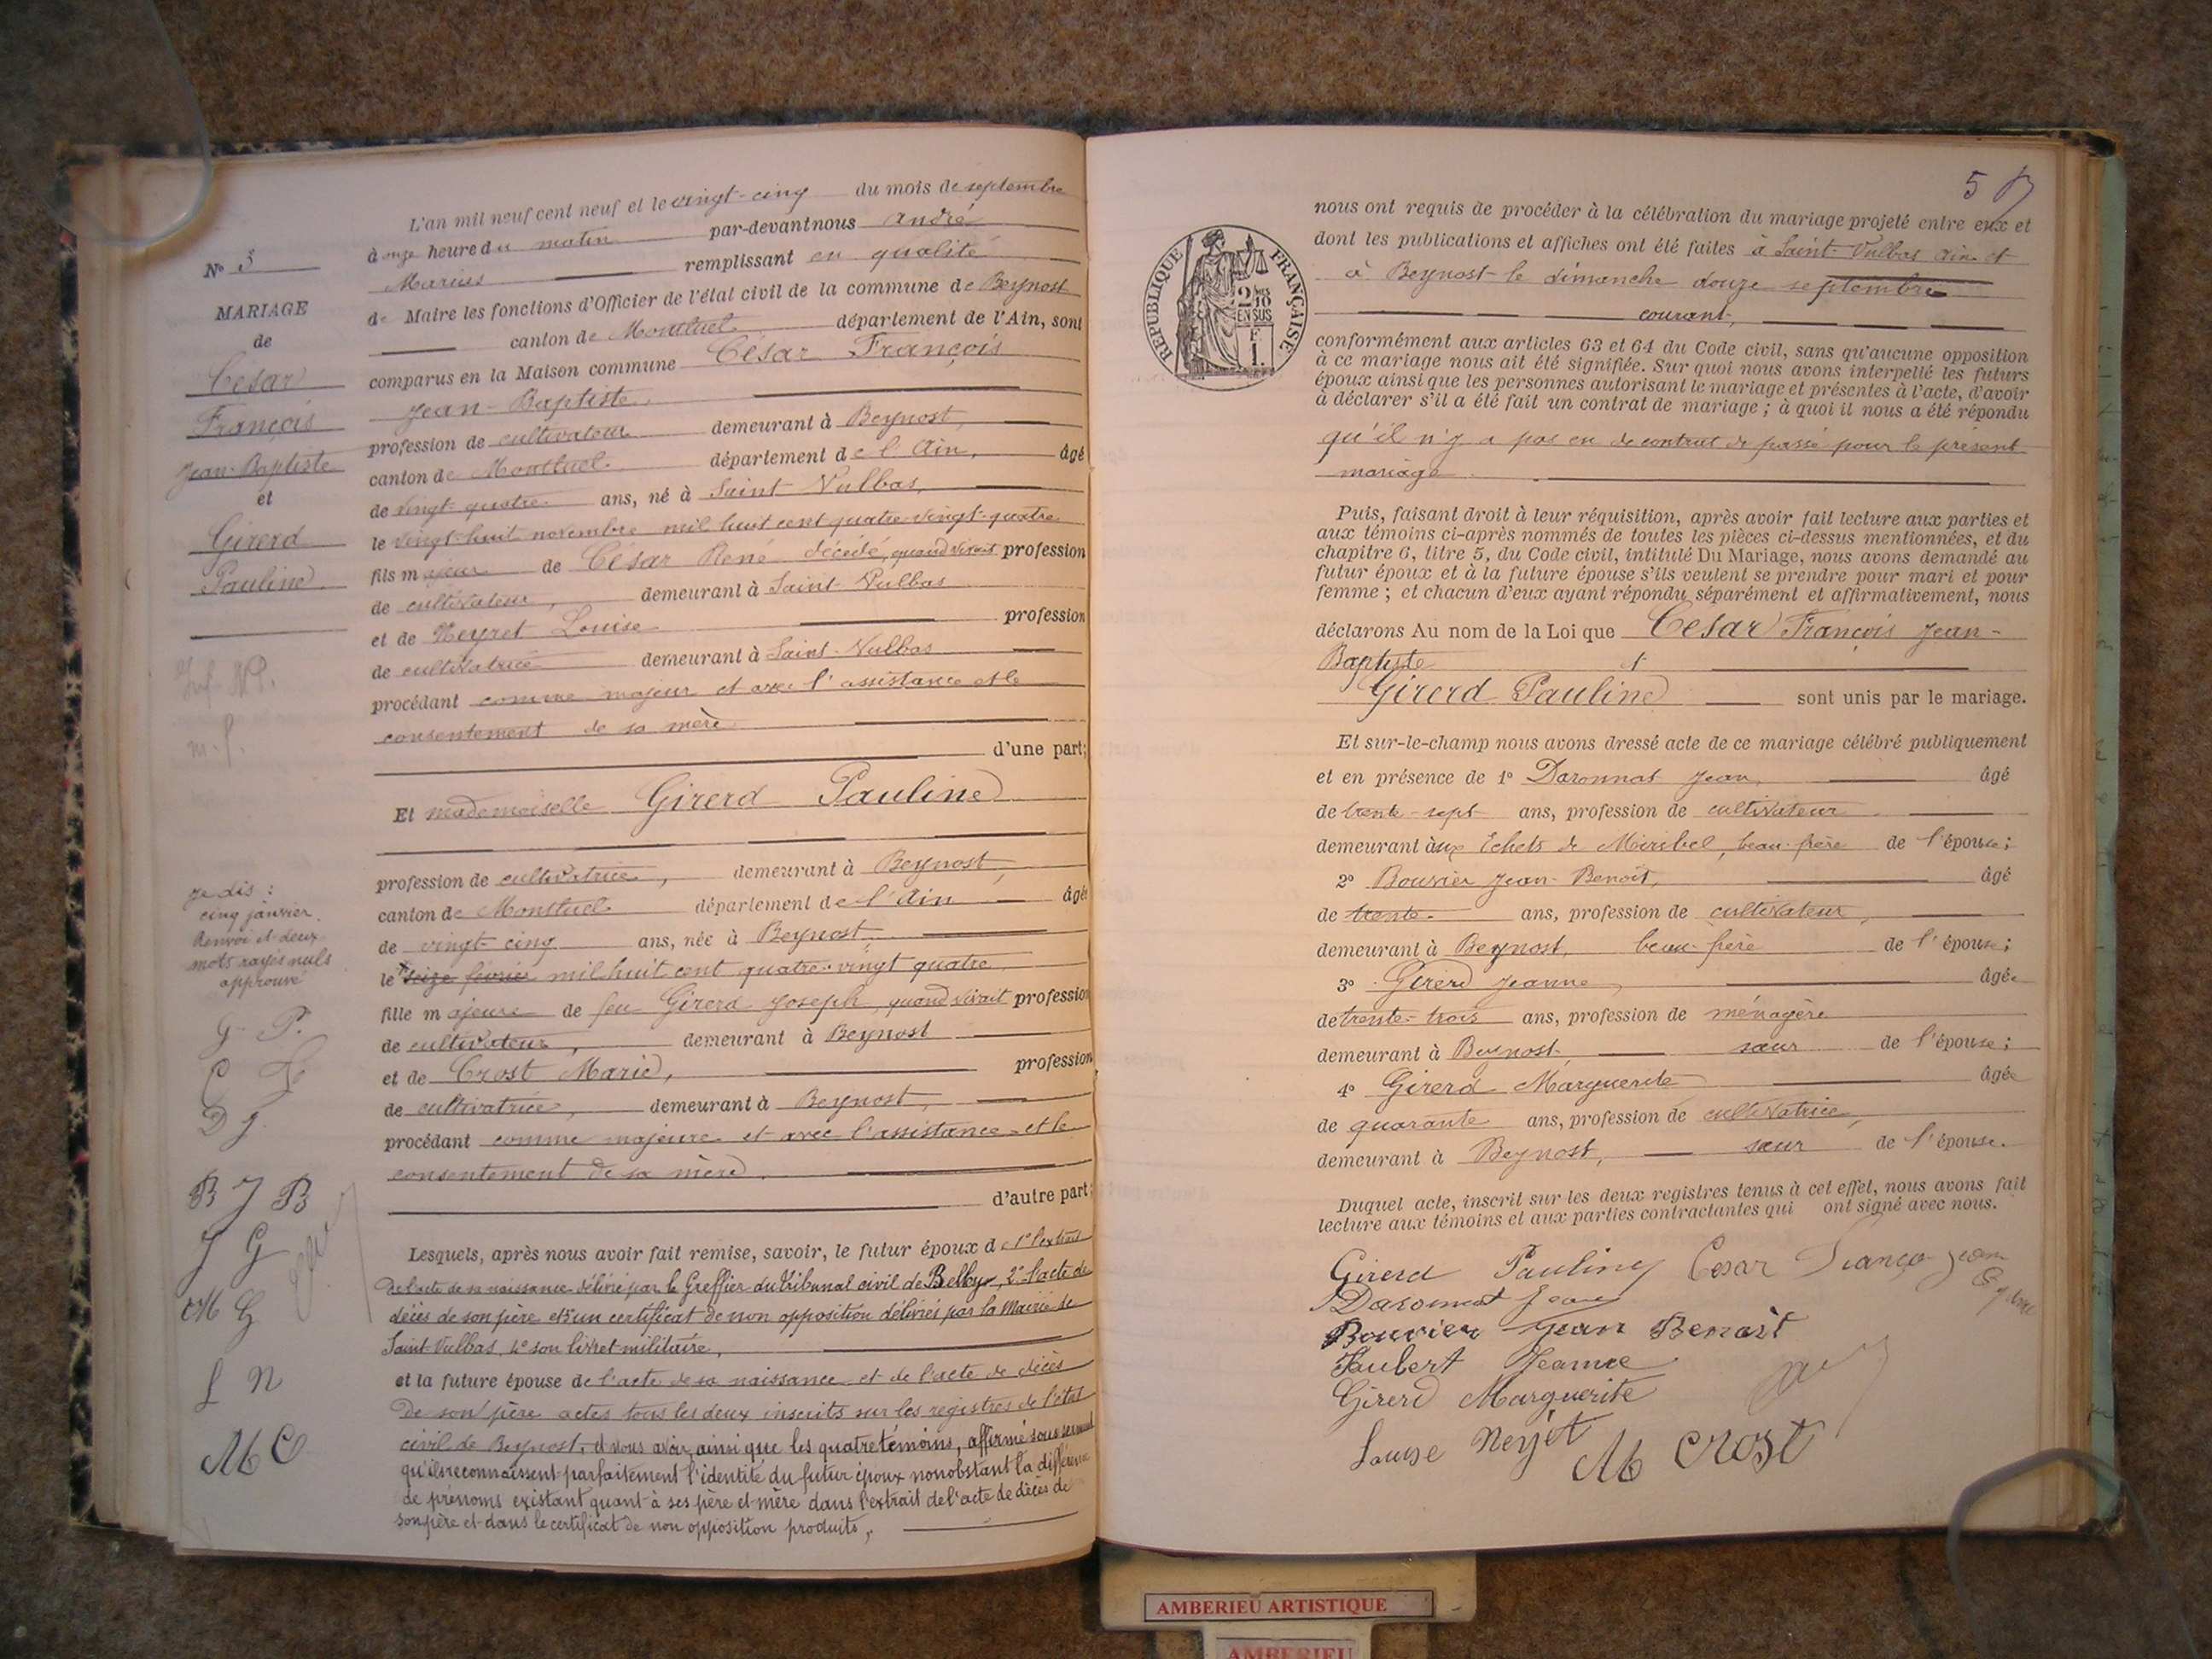 L'an mil neuf cent neuf et le vingt-cinq du mois de septembre
à onze heure du matin par-devant nous André
Marius remplissant en qualité
de Maire les fonctions d'Officier de l'état civil de la commune de Beynost
canton de Montluel département de l'Ain, sont
comparus en la Maison commune César François
Jean-Baptiste,
profession de cultivateur demeurant à Beynost,
canton de Montluel département de l'Ain, âgé
de vingt-quatre ans, né à Saint Vulbas,
le vingt-huit novembre mil huit cent quatre-vingt-quatre
fils majeur de César René décédé, quand vivait profession
de cultivateur, demeurant à Saint-Vulbas
et de Neyret Louise profession
de cultivatrice demeurant à Saint-Vulbas
procédant comme majeur et avec l'assistance et le
consentement de sa mère
d'une part;
Et mademoiselle Girerd Pauline
profession de cultivatrice, demeurant à Beynost,
canton de Montluel département de l'Ain âgée
de vingt-cinq ans, née à Beynost,
le seize février mil huit cent quatre-vingt quatre
fille majeure de feu Girerd Joseph, quand vivait profession
de cultivateur, demeurant à Beynost
et de Crost Marie, profession
de cultivatrice, demeurant à Beynost,
procédant comme majeure et avec l'assistance et le
consentement de sa mère.
d'autre part;
Lesquels, après nous avoir fait remise, savoir, le futur époux de 1° l'extrait
de l'acte de sa naissance délivré par le Greffier du tribunal civil de Belley, 2° l'acte de
décès de son père et 3° un certificat de non opposition délivrés par la Mairie de
Saint-Vulbas, 4° son livret militaire,
et la future épouse de l'acte de sa naissance et de l'acte de décès
de son père actes tous les deux inscrits sur les registres de l'état
civil de Beynost, et nous avoir, ainsi que les quatre témoins, affirmé sous serment
qu'ils reconnaissent parfaitement l'identité du futur époux nonobstant la différence
de prénoms existant quant à ses père et mère dans l'extrait de l'acte de décès de
son père et dans le certificat de non opposition produits,
N° 3
MARIAGE
de
César
François
Jean-Baptiste
et
Girerd
Pauline
je dis :
cinq janvier.
Renvoi et deux
mots rayés nuls
approuvé
G. P.
C
D J.
B J B
J G
M G
L N
M C
5
RÉPUBLIQUE FRANÇAISE
2/10
EN SUS
F
1.
nous ont requis de procéder à la célébration du mariage projeté entre eux et
dont les publications et affiches ont été faites à Saint-Vulbas Ain et
à Beynost le dimanche douze septembre
courant,
conformément aux articles 63 et 64 du Code civil, sans qu'aucune opposition
à ce mariage nous ait été signifiée. Sur quoi nous avons interpellé les futurs
époux ainsi que les personnes autorisant le mariage et présentes à l'acte, d'avoir
à déclarer s'il a été fait un contrat de mariage ; à quoi il nous a été répondu
qu'il n'y a pas eu de contrat de passé pour le présent
mariage.
Puis, faisant droit à leur réquisition, après avoir fait lecture aux parties et
aux témoins ci-après nommés de toutes les pièces ci-dessus mentionnées, et du
chapitre 6, titre 5, du Code civil, intitulé Du Mariage, nous avons demandé au
futur époux et à la future épouse s'ils veulent se prendre pour mari et pour
femme ; et chacun d'eux ayant répondu séparément et affirmativement, nous
déclarons Au nom de la Loi que César François Jean-
Baptiste et
Girerd Pauline sont unis par le mariage.
Et sur-le-champ nous avons dressé acte de ce mariage célébré publiquement
et en présence de 1° Daronnat Jean, âgé
de trente-sept ans, profession de cultivateur
demeurant aux Echets de Miribel, beau-frère de l'épouse;
2° Bouvier Jean-Benoit, âgé
de trente ans, profession de cultivateur,
demeurant à Beynost, beau-frère de l'épouse;
3° Girerd Jeanne, âgée
de trente-trois ans, profession de ménagère
demeurant à Beynost, sœur de l'épouse;
4° Girerd Marguerite âgée
de quarante ans, profession de cultivatrice,
demeurant à Beynost, sœur de l'épouse.
Duquel acte, inscrit sur les deux registres tenus à cet effet, nous avons fait
lecture aux témoins et aux parties contractantes qui ont signé avec nous.
Girerd Pauline Cesar
Jean
Bouvier Jean Benoit
Jeanne
Girerd Marguerite
Louise M Crost
AMBERIEU ARTISTIQUE
AMBERIEU